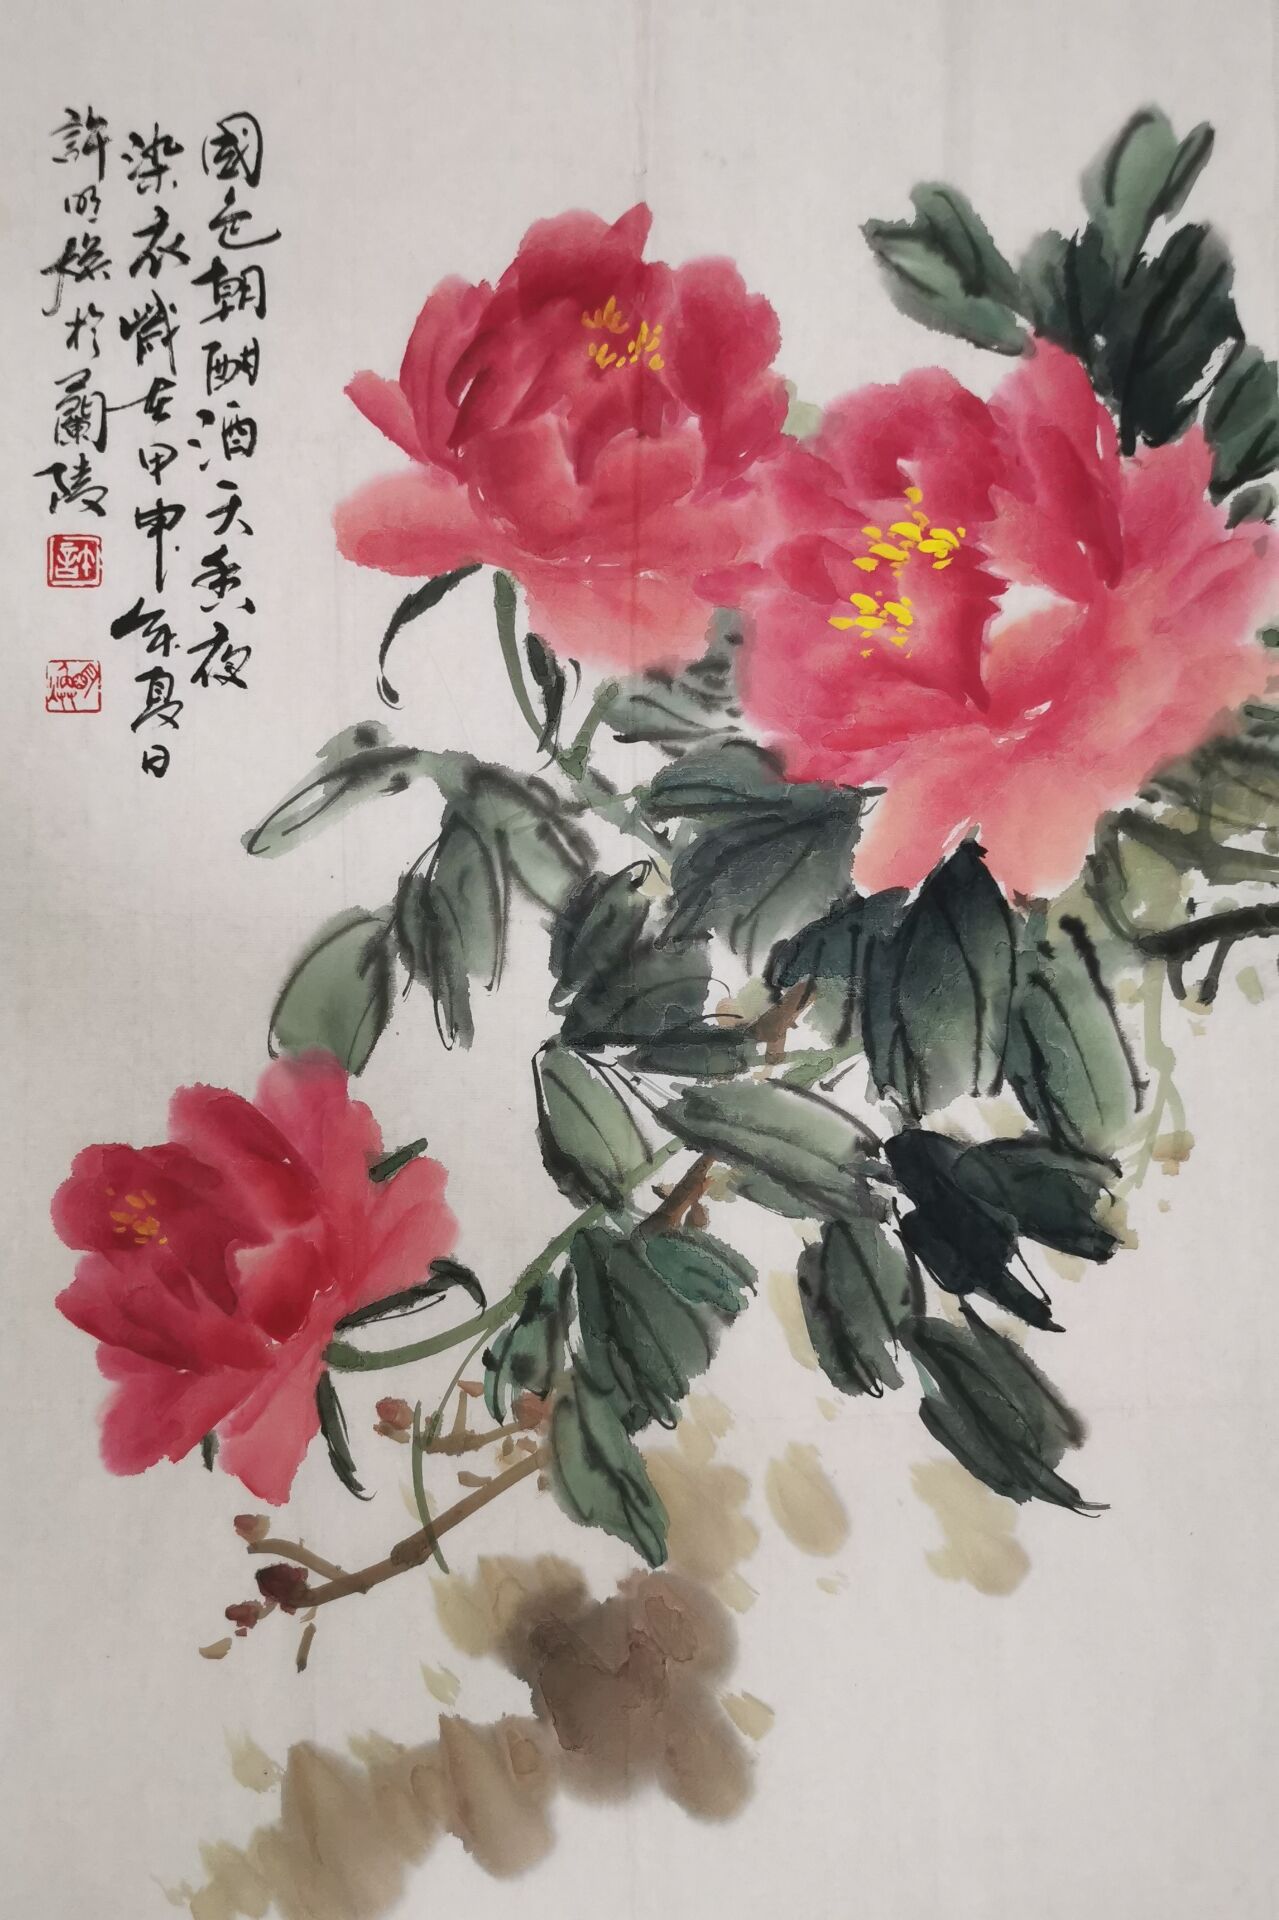 國色朝酣酒天香夜
染衣歲在甲申年夏日
許明焕於蘭陵
許